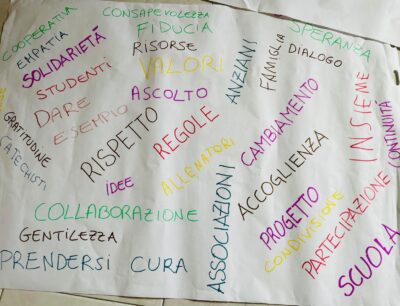 COOPERATIVA
CONSAPEVOLEZZA
SPERANZA
EMPATIA
FIDUCIA
SOLIDARIETÀ
RISORSE
DIALOGO
FAMIGLIA
STUDENTI
VALORI
ANZIANI
DARE
ASCOLTO
INSIEME
CONTINUITÀ
GRATITUDINE
ESEMPIO
CATECHISTI
RISPETTO
REGOLE
CAMBIAMENTO
IDEE
ALLENATORI
ACCOGLIENZA
COLLABORAZIONE
ASSOCIAZIONI
PROGETTO
CONDIVISIONE
PARTECIPAZIONE
GENTILEZZA
SCUOLA
PRENDERSI CURA